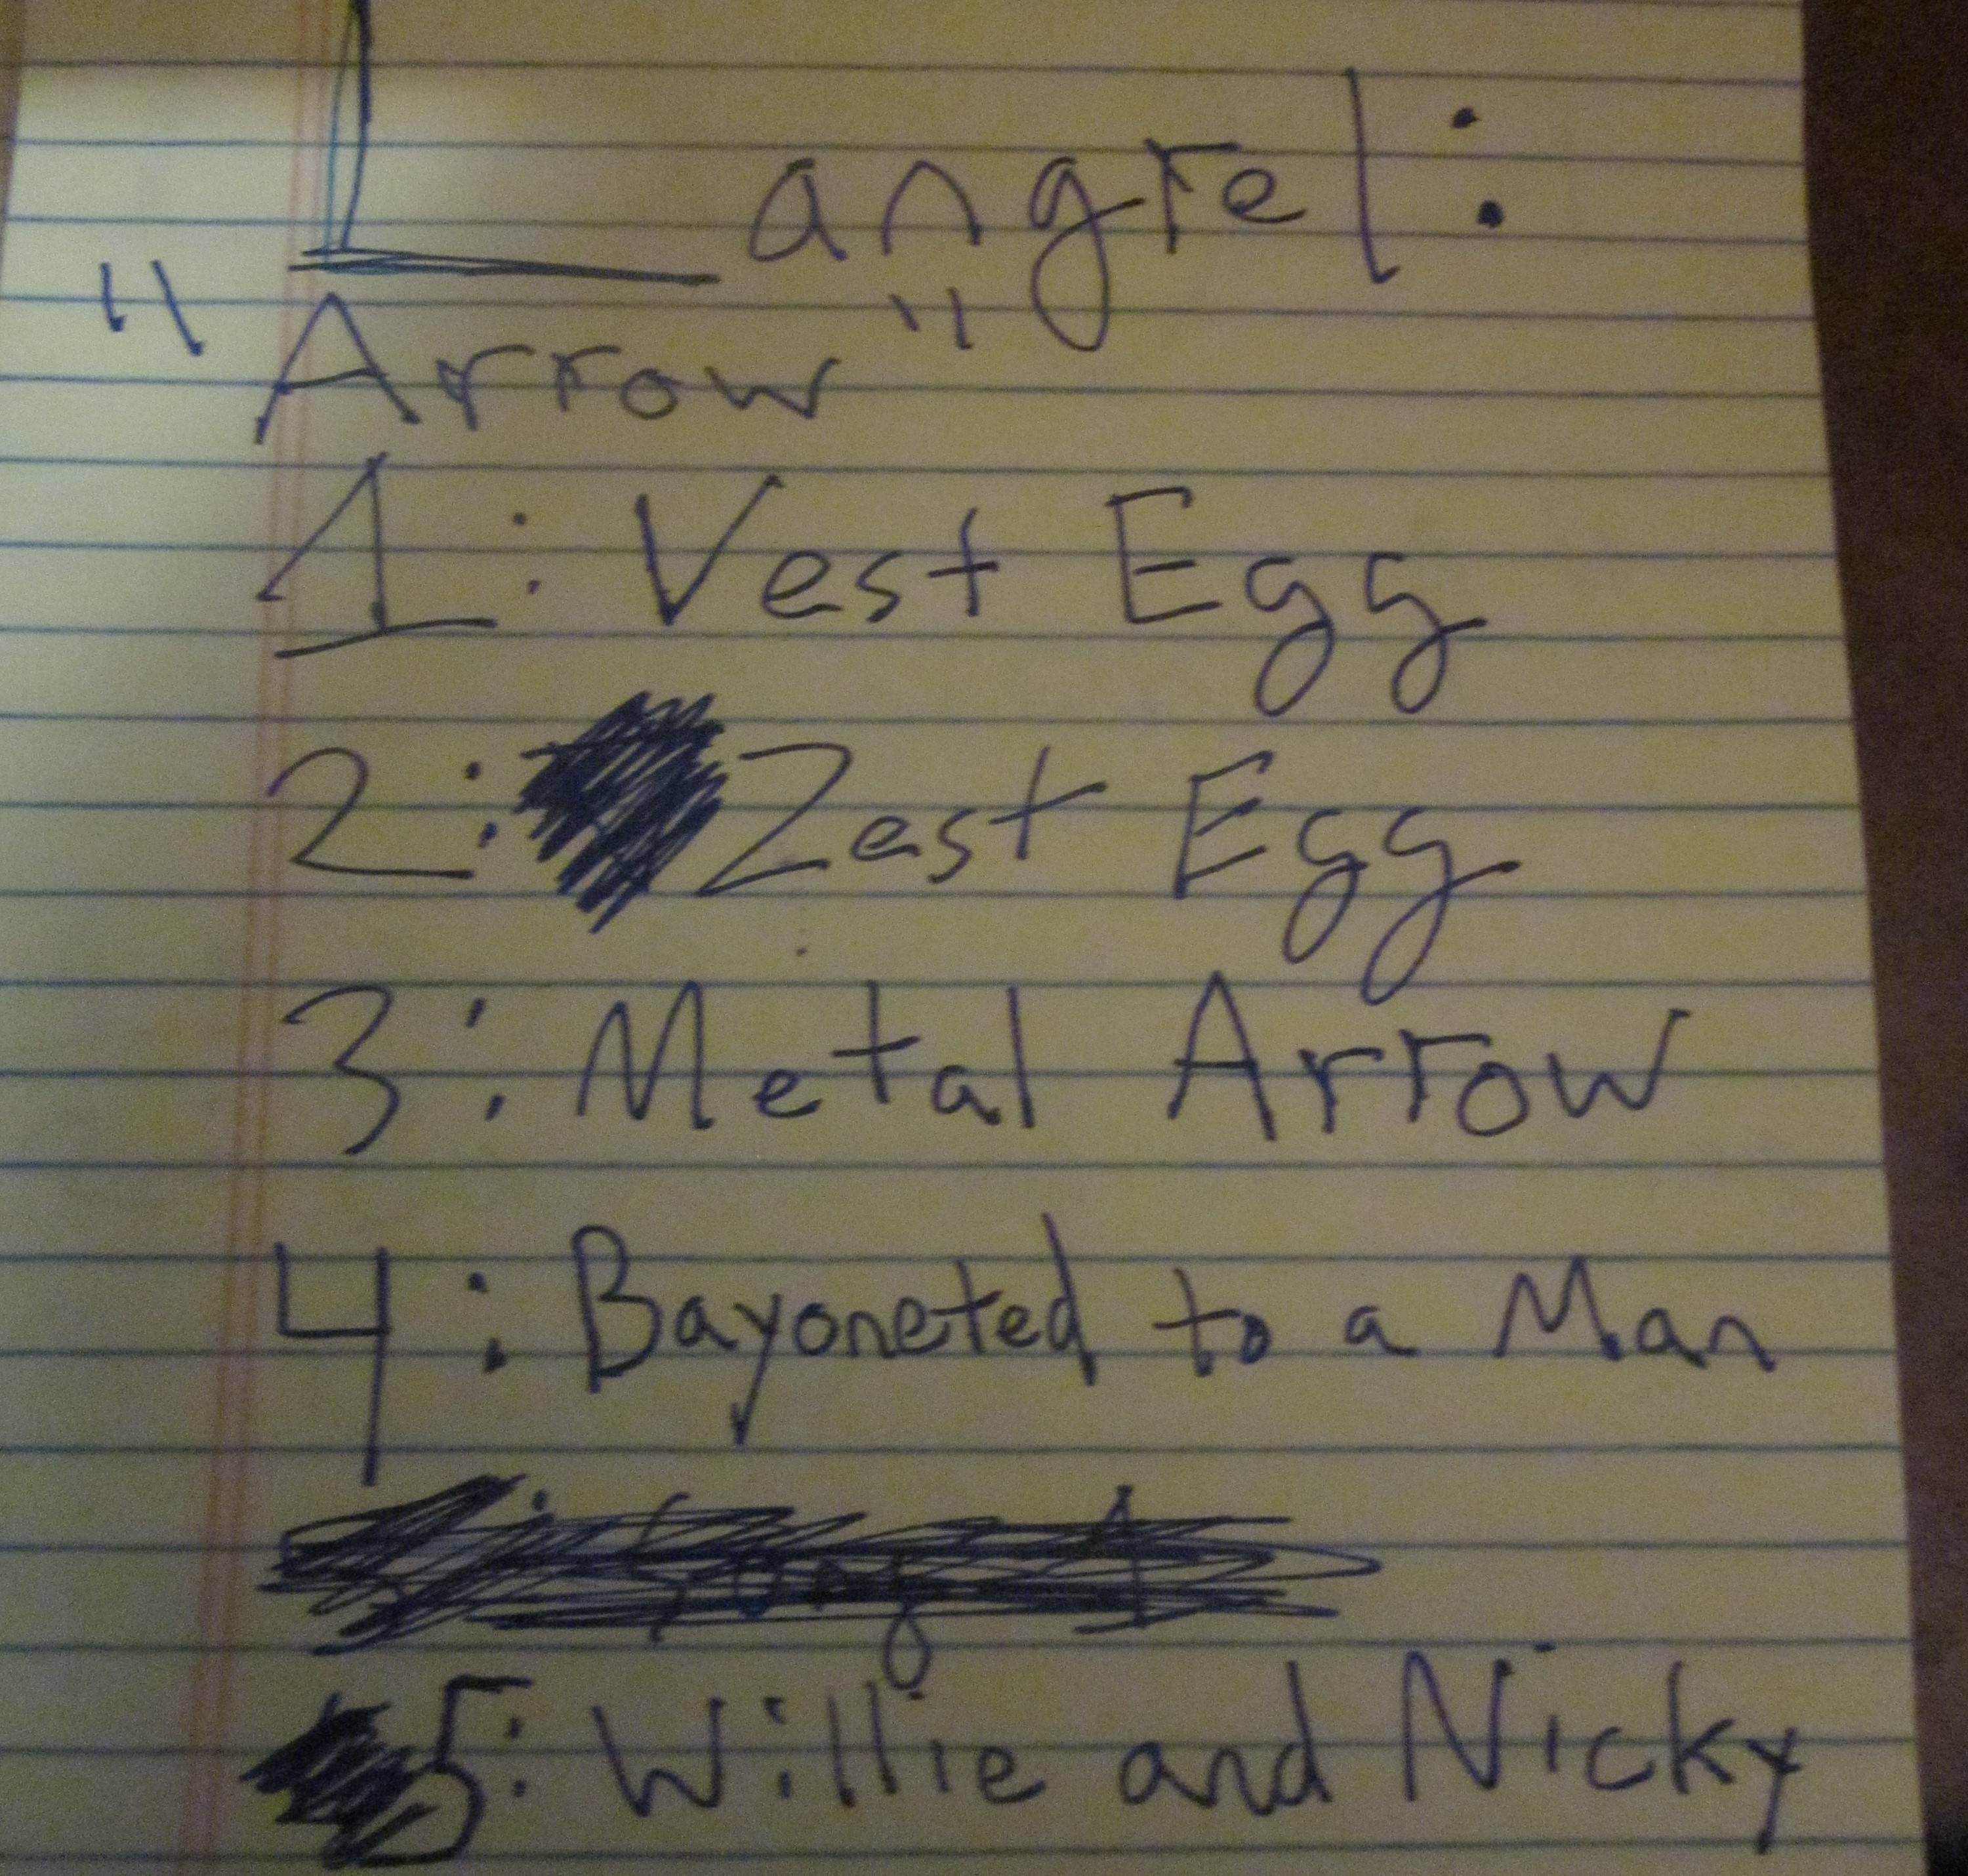 Langrel:
"Arrow"
1: Vest Egg
2: Zest Egg
3: Metal Arrow
4: Bayoneted to a Man
5: Willie and Nicky